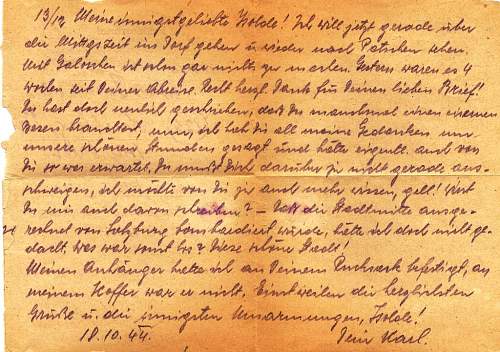 13/12 Meine innigstgeliebte Isolde! Ich will jetzt gerade über
die Mittgszeit ins Dorf gehen u. wieder nach Patschen sehen.
Mit Galoschen ist schon gar nichts zu machen. Gestern waren es 4
Wochen seit Deiner Abreise. Recht herzl. Dank für Deinen lieben Brief!
Du hast doch neulich geschrieben, daß Du manchmal einen eisernen
Besen brauchtest, nun, ich hab Dir all meine Gedanken um
unsere schönen Stunden gesagt und hätte eigentl. auch von
Dir so was erwartet. Du mußt Dich darüber ja nicht gerade aus-
schweigen, ich möchte von Dir ja auch mehr wissen, gell! Wirst
Du mir auch davon schreiben? – Daß die Stadtmitte ausge-
rechnet von Salzburg bombardiert würde, hätte ich doch nicht ge-
dacht. Was war sonst los? Diese schöne Stadt!
Meinen Anhänger hatte ich an Deinem Rucksack befestigt, an
meinem Koffer war er nicht. Einstweilen die herzlichsten
Grüße u. die innigsten Umarmungen, Isolde!
18.10.44. Dein Karl.